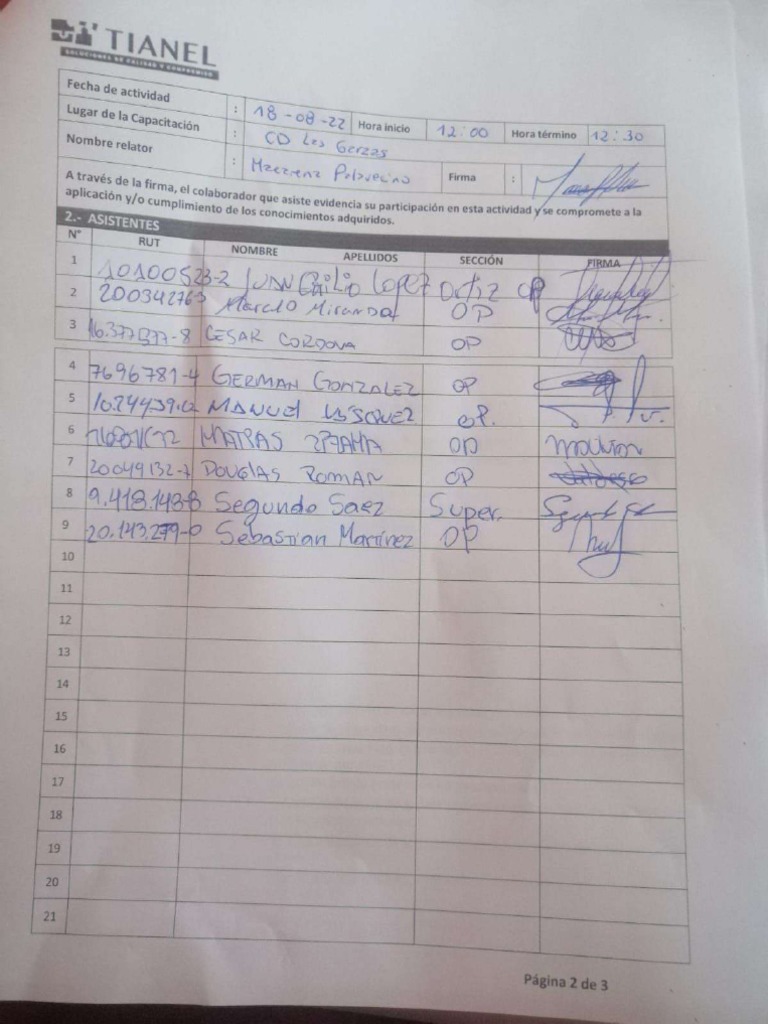 TIANEL
SOLUCIONES DE CALIDAD Y COMPROMISO
Fecha de actividad : 18-08-22 Hora inicio 12:00 Hora término 12:30
Lugar de la Capacitación : CD Las Garzas
Nombre relator : Firma :
A través de la firma, el colaborador que asiste evidencia su participación en esta actividad y se compromete a la
aplicación y/o cumplimiento de los conocimientos adquiridos.
2.- ASISTENTES
N° RUT NOMBRE APELLIDOS SECCIÓN FIRMA
1 10100523-2 JUAN Emilio Lopez Ortiz OP
2 Marcelo Miranda OP
3 16.377377-8 CESAR CORDOVA OP
4 7696781-4 GERMAN GONZALEZ OP
5 MANUEL VASQUEZ OP.
6 MATIAS OP
7 20049132-7 DOUGLAS ROMAN OP
8 9.418.148-8 Segundo Saez Super.
9 20.143.279-0 Sebastian Martinez OP
10
11
12
13
14
15
16
17
18
19
20
21
Página 2 de 3